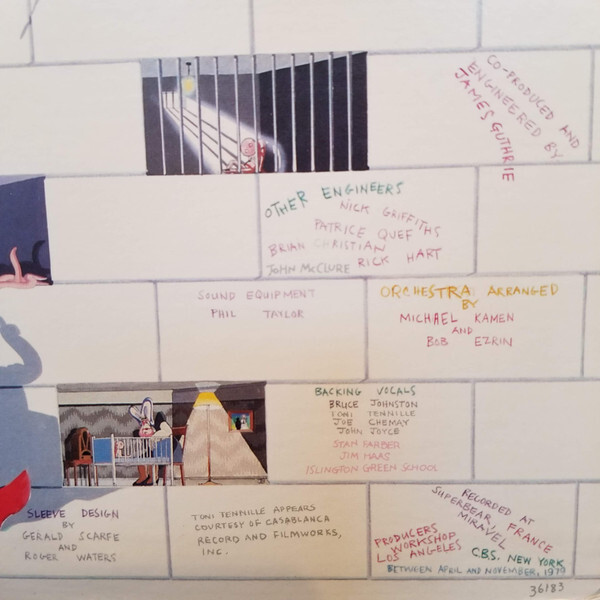 CO-PRODUCED AND
ENGINEERED BY
JAMES GUTHRIE
OTHER ENGINEERS
NICK GRIFFITHS
PATRICE QUEF
BRIAN CHRISTIAN
JOHN McCLURE RICK HART
SOUND EQUIPMENT
PHIL TAYLOR
ORCHESTRA ARRANGED
BY
MICHAEL KAMEN
AND
BOB EZRIN
BACKING VOCALS
BRUCE JOHNSTON
TONI TENNILLE
JOE CHEMAY
JOHN JOYCE
STAN FARBER
JIM HAAS
ISLINGTON GREEN SCHOOL
SLEEVE DESIGN
BY
GERALD SCARFE
AND
ROGER WATERS
TONI TENNILLE APPEARS
COURTESY OF CASABLANCA
RECORD AND FILMWORKS,
INC.
RECORDED AT
SUPERBEAR, FRANCE
MIRAVEL
PRODUCERS
WORKSHOP
LOS ANGELES
C.B.S. NEW YORK
BETWEEN APRIL AND NOVEMBER, 1979
36183